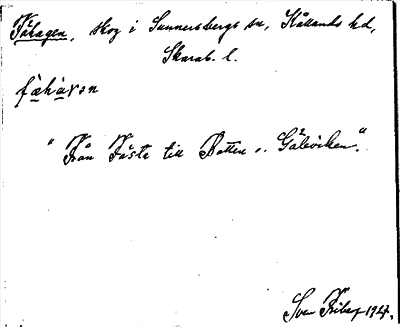 Fåhagen, skog i Sunnersbergs sn, Kållands hd,
Skarab. l.
fåhàvən
"Från Fäste till Botten o. Gåleviken."
Sven Friberg 1927.